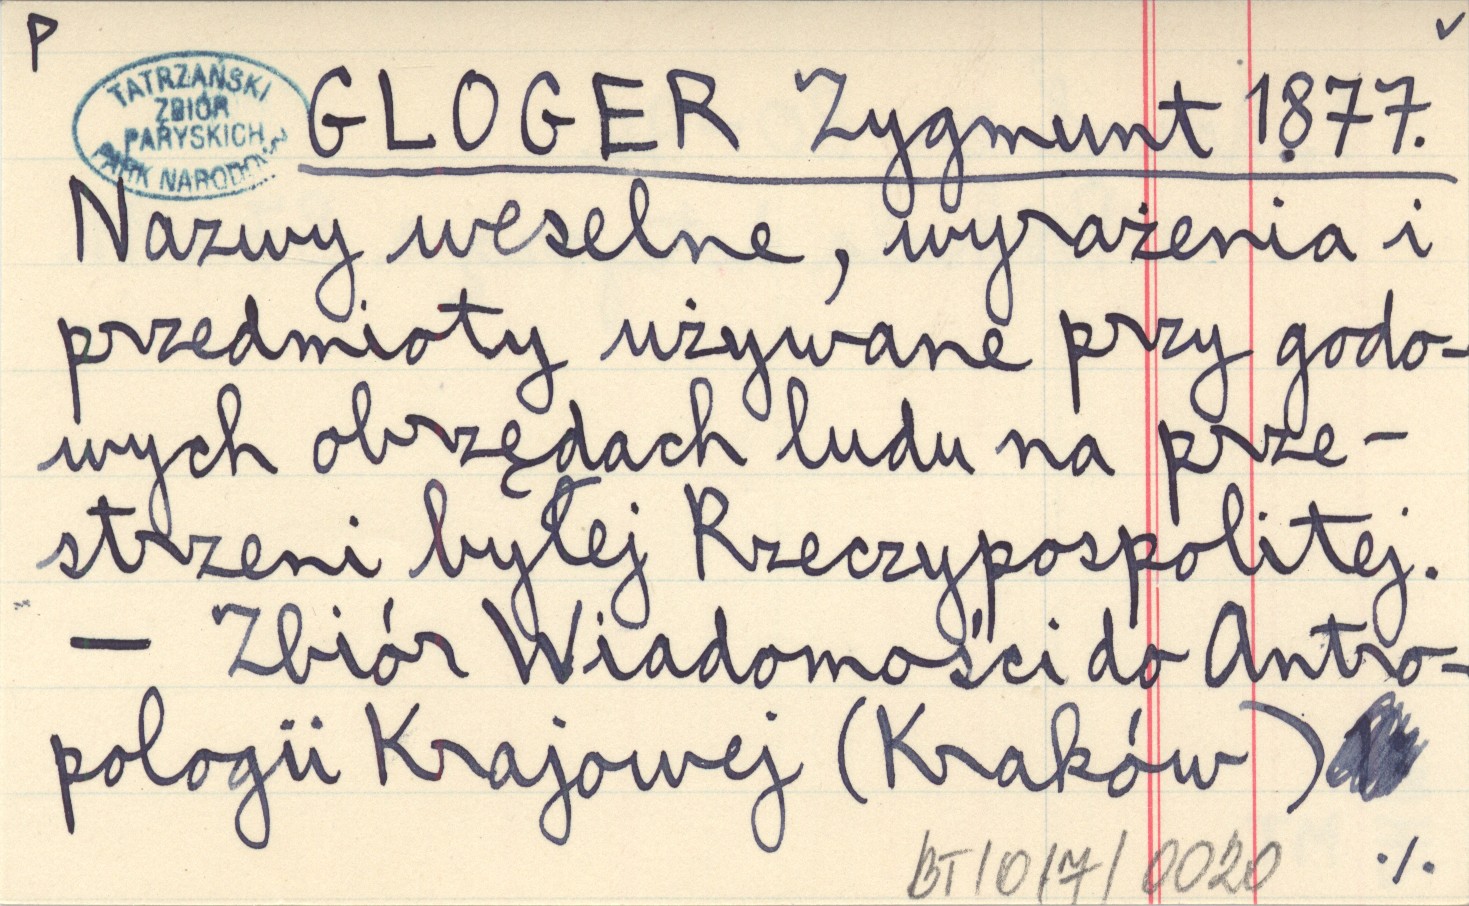 P
TATRZAŃSKI
ZBIÓR
PARYSKICH
PARK NARODOWY
GLOGER Zygmunt 1877.
Nazwy weselne, wyrażenia i
przedmioty używane przy godo-
wych obrzędach ludu na prze-
strzeni byłej Rzeczypospolitej.
— Zbiór Wiadomości do Antro-
pologii Krajowej (Kraków)
BT/0/7/0020
./.